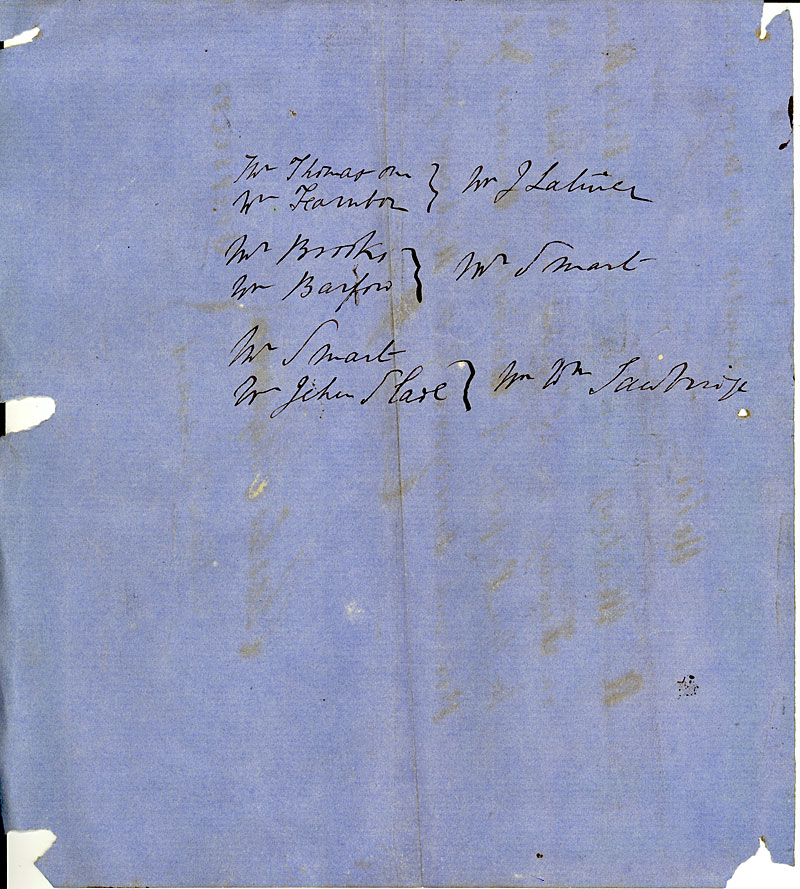 Mr Thomason } Mr J Latimer
Mr Fearnbon
Mr Brooks } Mr Smart
Mr Barfow
Mr Smart
Mr John Slare } Mr Wm Sawbridge